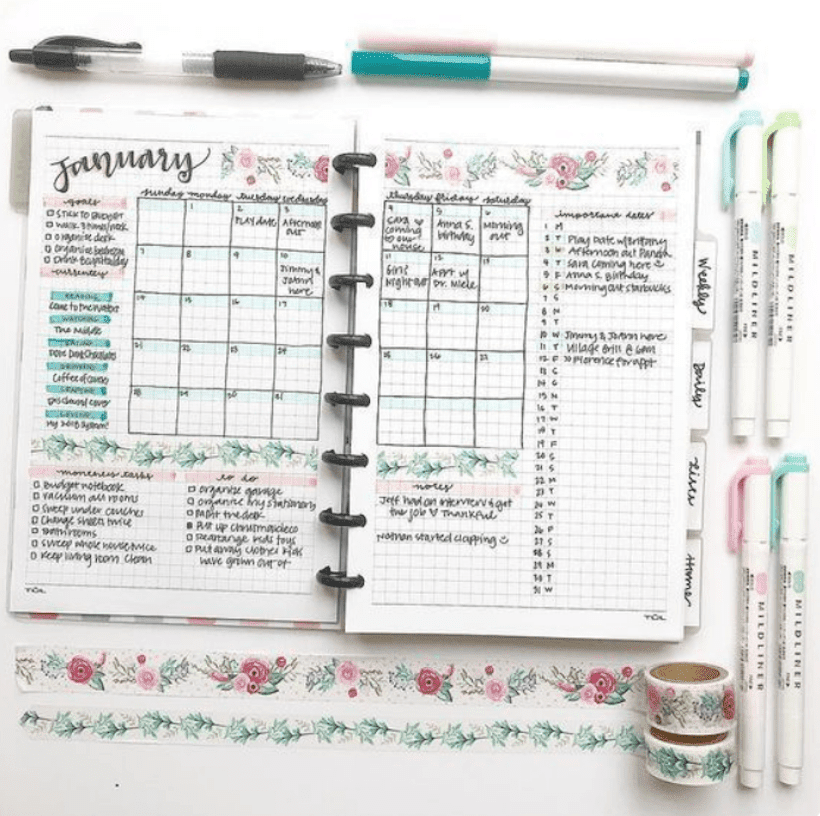 January
goals
STICK TO BUDGET
organize desk
currently
READING
WATCHING
The Middle
EATING
DRINKING
LOVING
sunday monday tuesday wednesday
1 2 3
PLAY date Afternoon out
7 8 9 10
Jimmy & JoAnn here
14 15 16 17
21 22 23 24
29 30 31
thursday friday saturday
4 5 6
Sara coming to our house
Anna S. birthday
Morning out
11 12 13
Girls Night out
Appt. w/ Dr. Miele
18 19 20
important dates
1 M
2 T Play Date w/Brittany
3 W Afternoon out Panera
4 T Sara coming here
5 F Anna S. Birthday
6 S Morning out Starbucks
7 S
8 M
9 T
10 W Jimmy & JoAnn here
11 T Village Grill @ 6pm
12 F to Florence for appt
13 S
14 S
15 M
16 T
17 W
18 T
19 F
20 S
21 S
22 M
23 T
24 W
25 T
26 F
27 S
28 S
29 M
30 T
31 W
to do
Budget notebook
vacuum all rooms
Sweep under couches
Change sheets twice
Bathrooms
Sweep whole house twice
Keep living room clean
organize garage
organize my stationery
Paint the desk
Put up christmas deco
Rearrange kids toys
Put away clothes kids
have grown out of
notes
Jeff had an interview & got
the job Thankful
Nathan started clapping
Weekly
Daily
Lists
Home
MILDLINER
MILDLINER
MILDLINER
MILDLINER